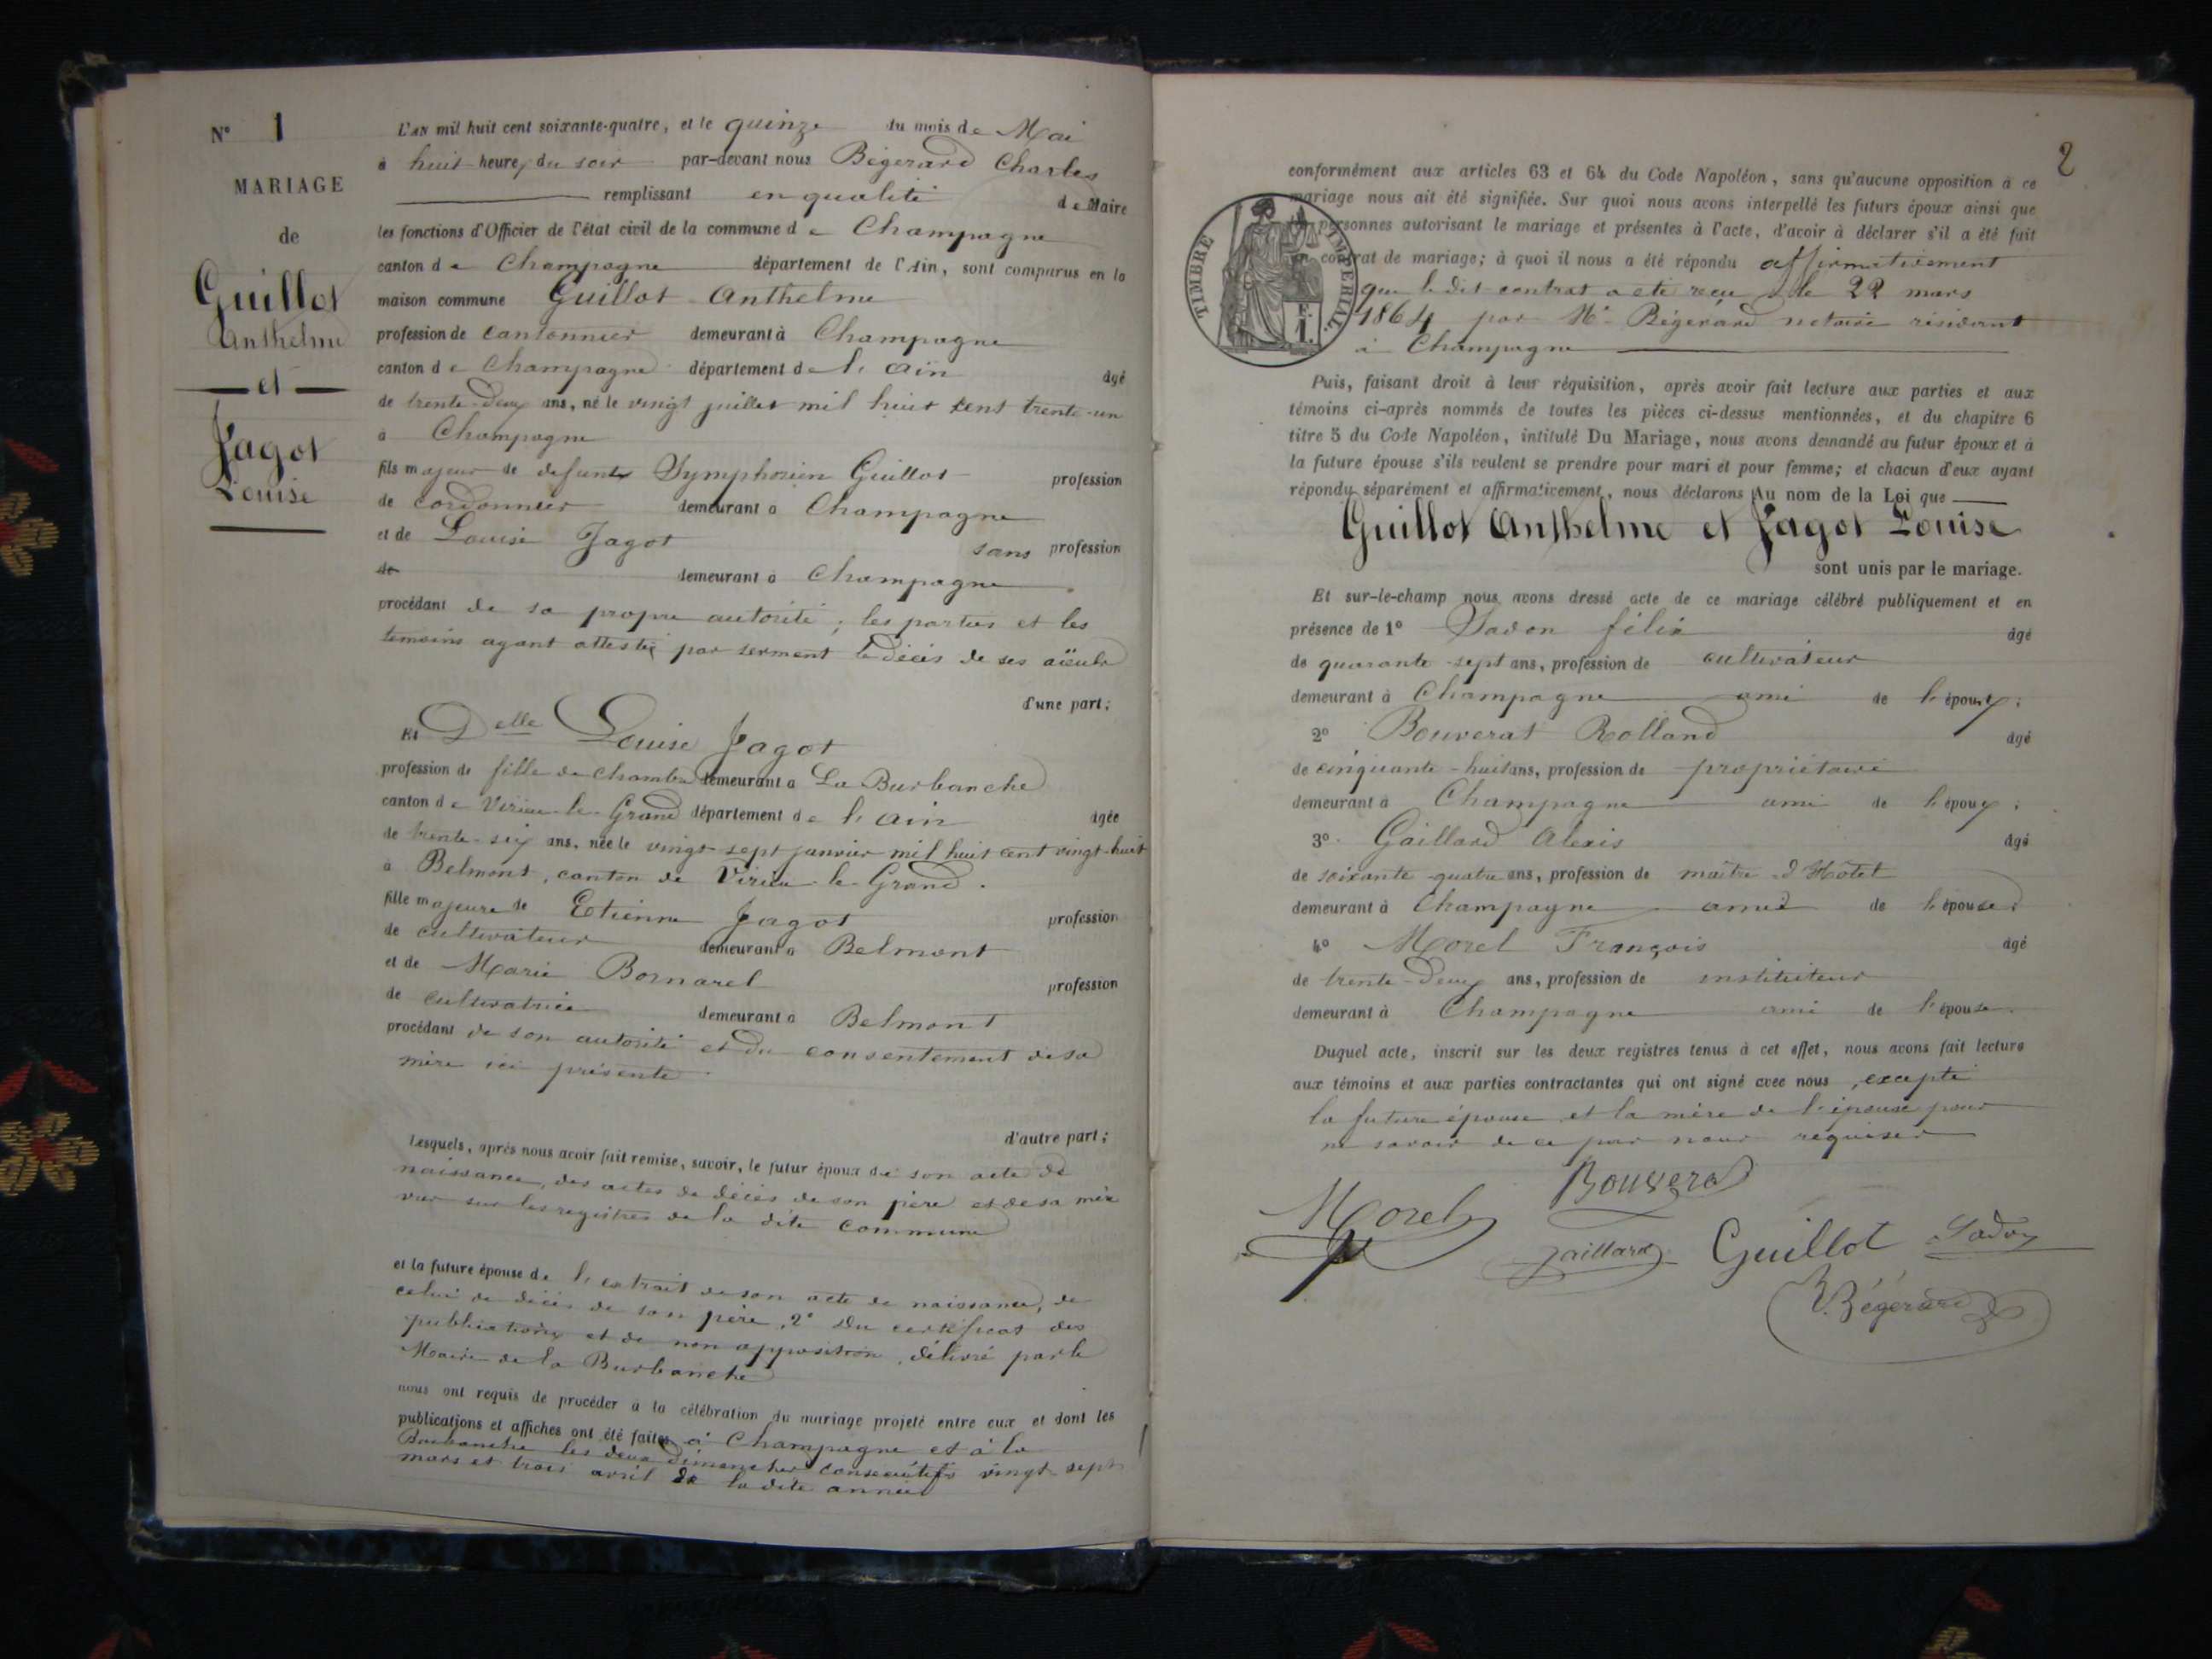 N° 1
MARIAGE
de
Guillot
Anthelme
et
Jagot
Louise
L'AN mil huit cent soixante-quatre, et le quinze du mois de Mai
à huit heures du soir par-devant nous Bégerard Charles
remplissant en qualité de Maire
les fonctions d'Officier de l'état civil de la commune de Champagne
canton de Champagne département de l'Ain, sont comparus en la
maison commune Guillot Anthelme
profession de cantonnier demeurant à Champagne
canton de Champagne département de l'Ain âgé
de trente-deux ans, né le vingt juillet mil huit cent trente-un
à Champagne
fils majeur de defunts Symphorien Guillot profession
de cordonnier demeurant à Champagne
et de Louise Jagot sans profession
de demeurant à Champagne
procédant de sa propre autorité ; les parties et les
temoins ayant attesté par serment le décès de ses aïeuls
d'une part ;
Et Delle Louise Jagot
profession de fille de chambre demeurant à La Burbanche
canton de Virieu-le-Grand département de l'Ain âgée
de trente-six ans, née le vingt-sept janvier mil huit cent vingt-huit
à Belmont, canton de Virieu-le-Grand.
fille majeure de Etienne Jagot profession
de cultivateur demeurant à Belmont
et de Marie Bornarel profession
de cultivatrice demeurant à Belmont
procédant de son autorité et du consentement de sa
mère ici présente.
d'autre part ;
Lesquels, après nous avoir fait remise, savoir, le futur époux de son acte de
naissance, des actes de décès de son père et de sa mère
vus sur les registres de la dite commune
et la future épouse de l'extrait de son acte de naissance, de
celui de décès de son père, 2° du certificat des
publications et de non opposition, délivré par le
Maire de la Burbanche
nous ont requis de procéder à la célébration du mariage projeté entre eux et dont les
publications et affiches ont été faites à Champagne et à la
Burbanche les deux dimanches consécutifs vingt-sept
mars et trois avril de la dite année
2
conformément aux articles 63 et 64 du Code Napoléon, sans qu'aucune opposition à ce
mariage nous ait été signifiée. Sur quoi nous avons interpellé les futurs époux ainsi que
personnes autorisant le mariage et présentes à l'acte, d'avoir à déclarer s'il a été fait
contrat de mariage ; à quoi il nous a été répondu affirmativement
que le dit contrat a été reçu le 22 mars
1864 par Me Bégerard notaire résidant
à Champagne
TIMBRE IMPERIAL
1 F.
Puis, faisant droit à leur réquisition, après avoir fait lecture aux parties et aux
témoins ci-après nommés de toutes les pièces ci-dessus mentionnées, et du chapitre 6
titre 5 du Code Napoléon, intitulé Du Mariage, nous avons demandé au futur époux et à
la future épouse s'ils veulent se prendre pour mari et pour femme; et chacun d'eux ayant
répondu séparément et affirmativement, nous déclarons Au nom de la Loi que
Guillot Anthelme et Jagot Louise
sont unis par le mariage.
Et sur-le-champ nous avons dressé acte de ce mariage célébré publiquement et en
présence de 1° Savon félix âgé
de quarante-sept ans, profession de cultivateur
demeurant à Champagne ami de l'époux ;
2° Bouverat Rolland âgé
de cinquante-huit ans, profession de propriétaire
demeurant à Champagne ami de l'époux ;
3° Gaillard Alexis âgé
de soixante-quatre ans, profession de maître d'Hôtel
demeurant à Champagne ami de l'épouse ;
4° Morel François âgé
de trente-deux ans, profession de instituteur
demeurant à Champagne ami de l'épouse.
Duquel acte, inscrit sur les deux registres tenus à cet effet, nous avons fait lecture
aux témoins et aux parties contractantes qui ont signé avec nous, excepté
la future épouse et la mère de l'épouse pour
ne savoir de ce par nous requises
Bouverat
Morel
Gaillard Guillot Savon
Bégerard